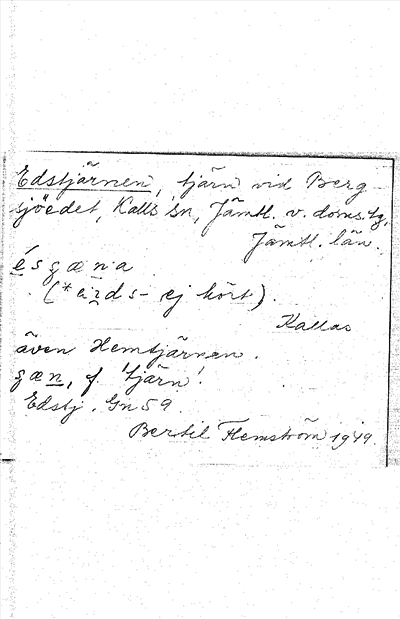 Edstjärnen, tjärn vid Berg-
sjöedet, Kalls sn, Jämtl. v. doms.tg,
Jämtl. län.
ésgæna
(*eids- ej hört).
Kallas
även Hemtjärnen.
gæn, f. 'tjärn'.
Edstj. Gn 59.
Bertil Flemström 1949.